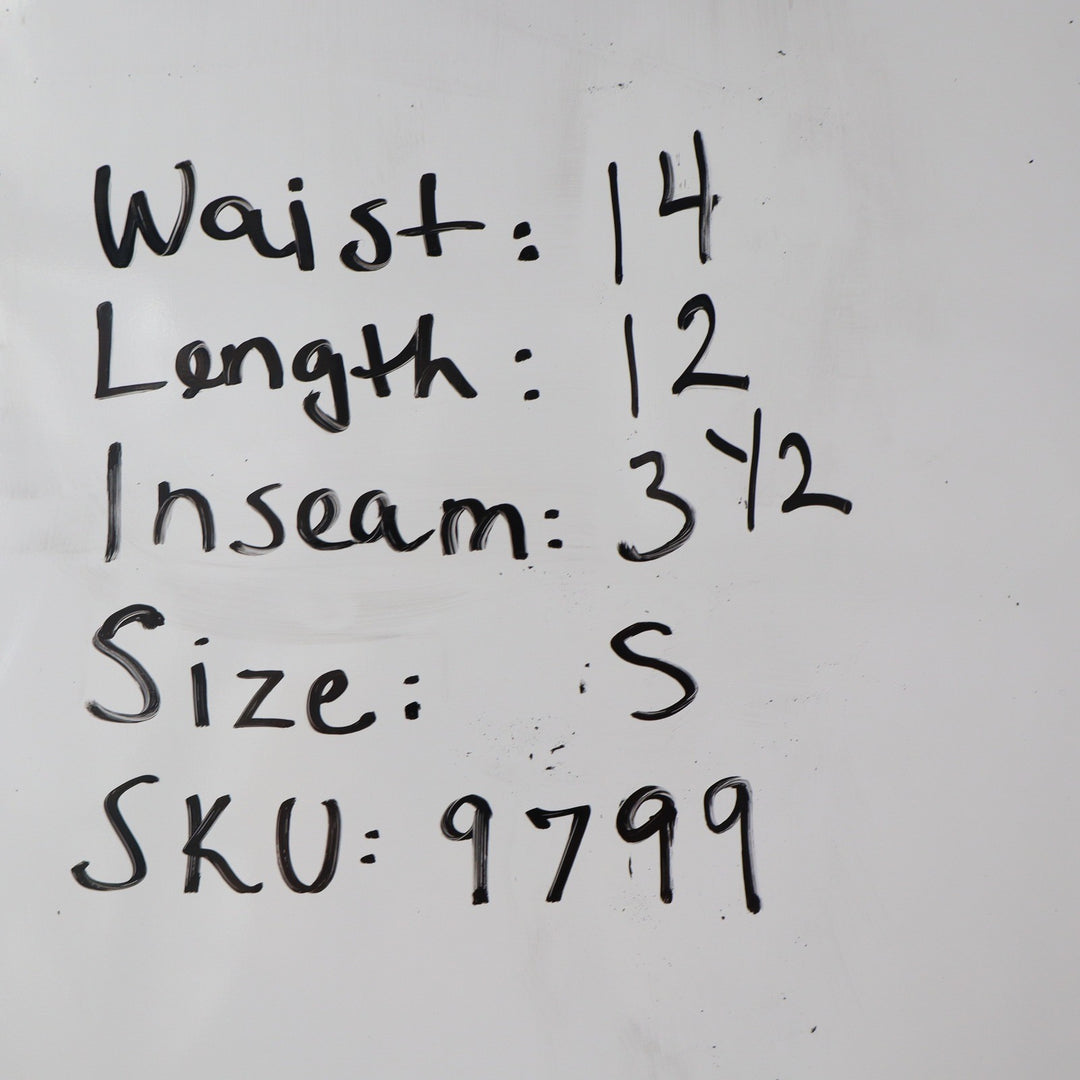 Waist: 14
Length: 12
Inseam: 3 1/2
Size: S
SKU: 9799